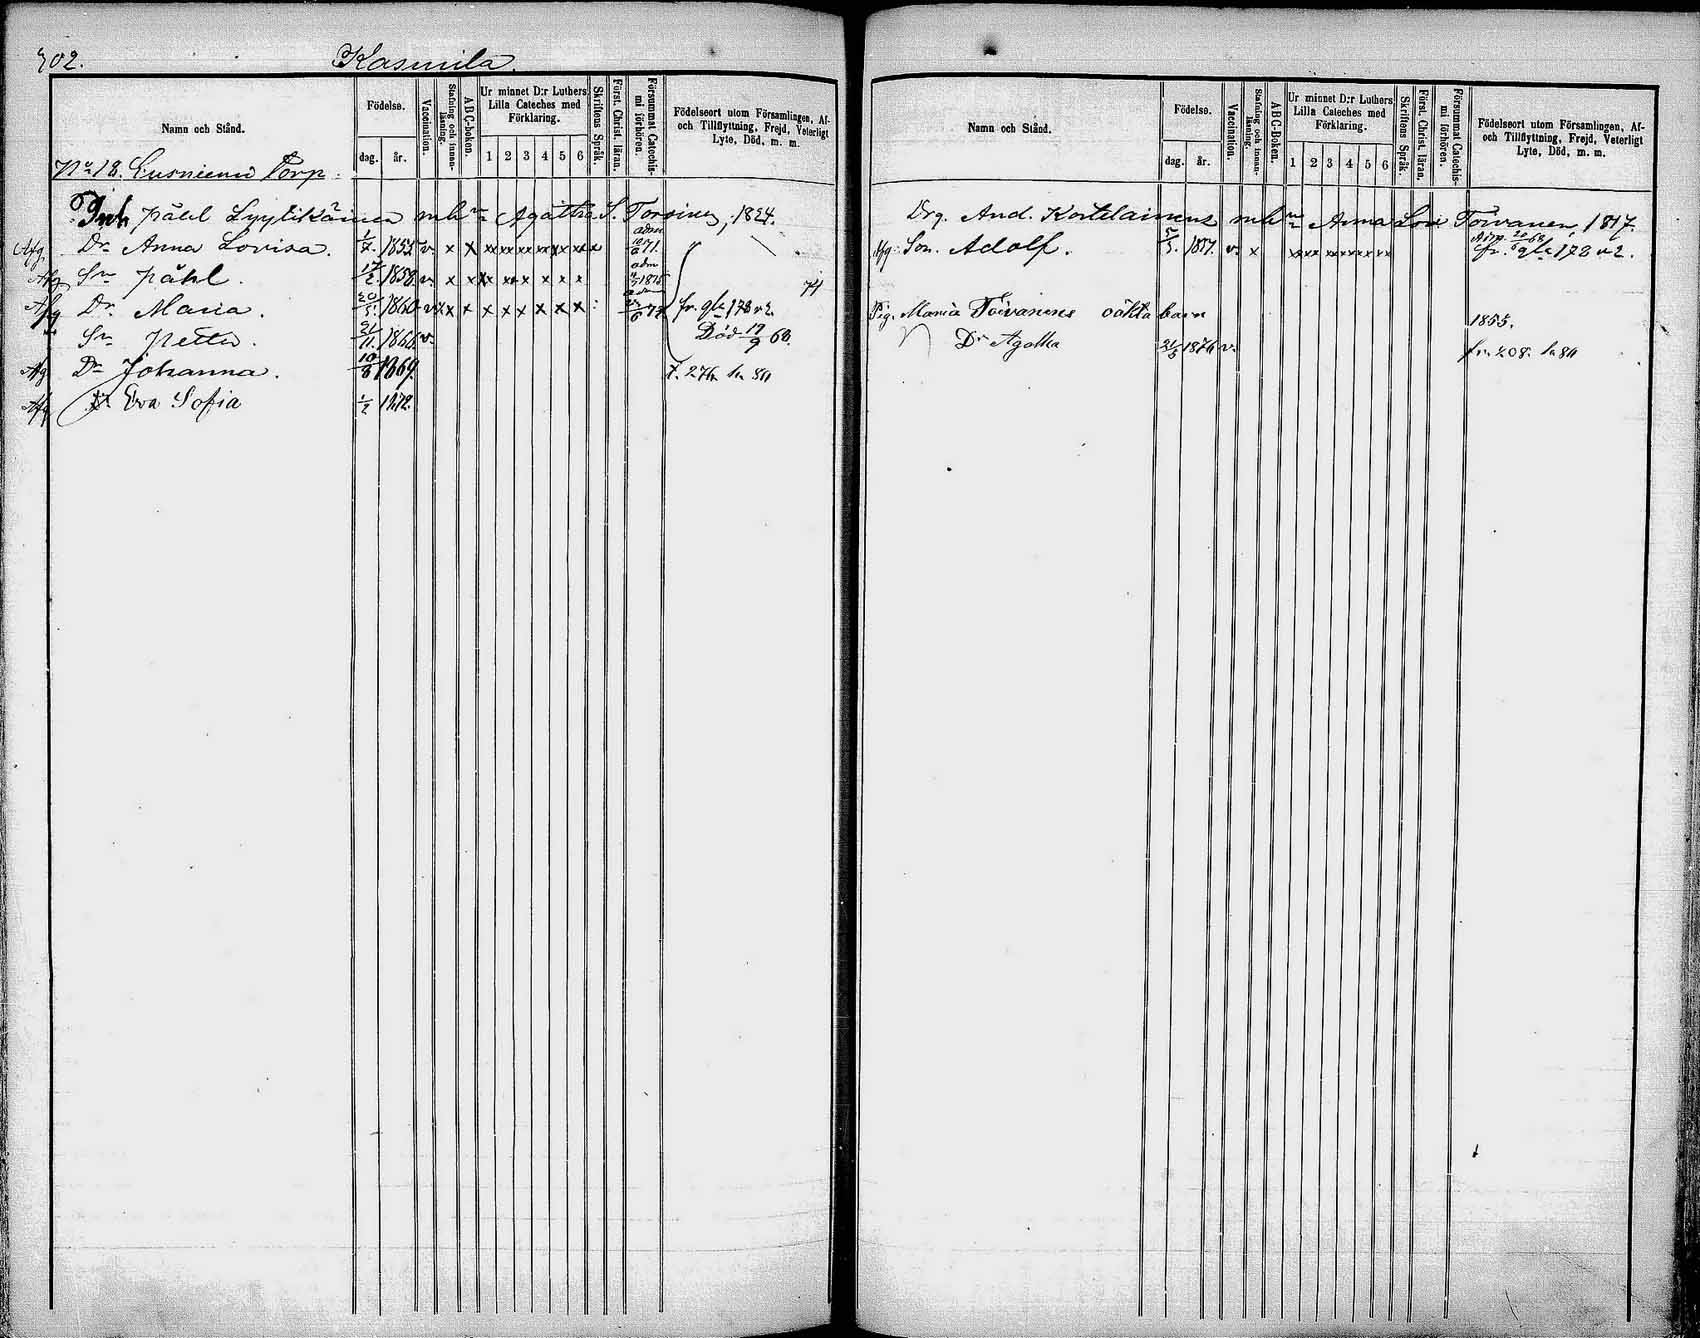 402. Kasurila.
Namn och Stånd.
Födelse.
dag. år.
Vaccination.
Stafning och innanläsning.
ABC-boken.
Ur minnet D:r Luthers Lilla Cateches med Förklaring.
1 2 3 4 5 6
Skriftens Språk.
Först. Christ. läran.
Försummat Catechismi förhören.
Födelseort utom Församlingen, Af- och Tillflyttning, Frejd, Veterligt Lyte, Död, m. m.
No 18. Torp
Inh Påhl Lyytikäinen m h n Agatha S. Toroinen, 1824.
Afg. Dr. Anna Lovisa. 1/7. 1855. v. x x xx xx xx xx xx xx x adm 71.
Afg Sn Påhl. 17/2 1858. v. x x x x x x x x adm 1875 74
Afg Dr. Maria. 20/5. 1860 v x x x x x x x x adm fr. gla 178 v 2.
Sn Petter. 21/11. 1866. v. Död 17/9 68.
Afg Dr Johanna. 10/8 1869. f. 276 la 80
Afg Dr Eva Sofia 1/2 1872.
Namn och Stånd.
Födelse.
dag. år.
Vaccination.
Stafning och innanläsning.
ABC-Boken.
Ur minnet D:r Luthers Lilla Cateches med Förklaring.
1 2 3 4 5 6
Skriftens Språk.
Först. Christ. läran.
Försummat Catechismi förhören.
Födelseort utom Församlingen, Af- och Tillflyttning, Frejd, Veterligt Lyte, Död, m. m.
Drg. And. Kortelainens m h n Anna Lovi Toivanen, 1817.
Afg: Son. Adolf. 5/5. 1851. v. x xx xx xx xx xx xx fr. gla 178 v 2.
Pig. Maria Toivanens oäkta barn 1855.
Dr Agatha 21/5 1876 v. fr. 208. la 80